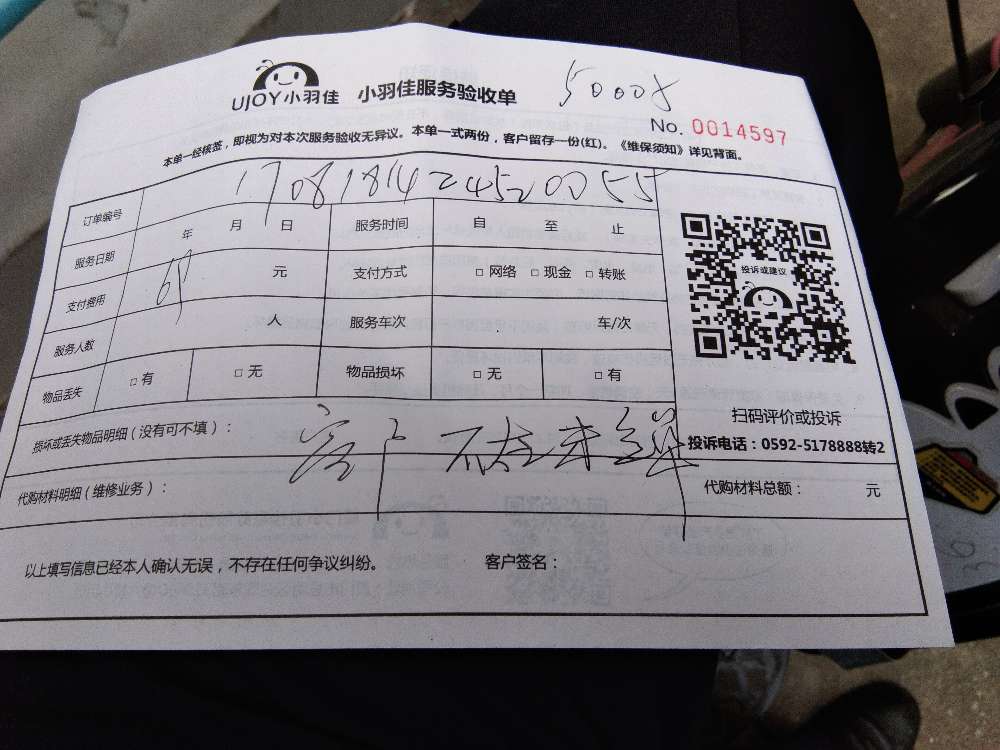 UJOY小羽佳 小羽佳服务验收单 50008
No. 0014597
本单一经核签，即视为对本次服务验收无异议。本单一式两份，客户留存一份(红)。《维保须知》详见背面。
订单编号 1708181424520055
服务日期 年 月 日 服务时间 自 至 止
支付费用 元 支付方式 □ 网络 □ 现金 □ 转账
服务人数 人 服务车次 车/次
物品丢失 □ 有 □ 无 物品损坏 □ 无 □ 有
投诉或建议
扫码评价或投诉
投诉电话：0592-5178888转2
损坏或丢失物品明细（没有可不填）： 客户不在未签单
代购材料明细（维修业务）： 代购材料总额： 元
以上填写信息已经本人确认无误，不存在任何争议纠纷。 客户签名：